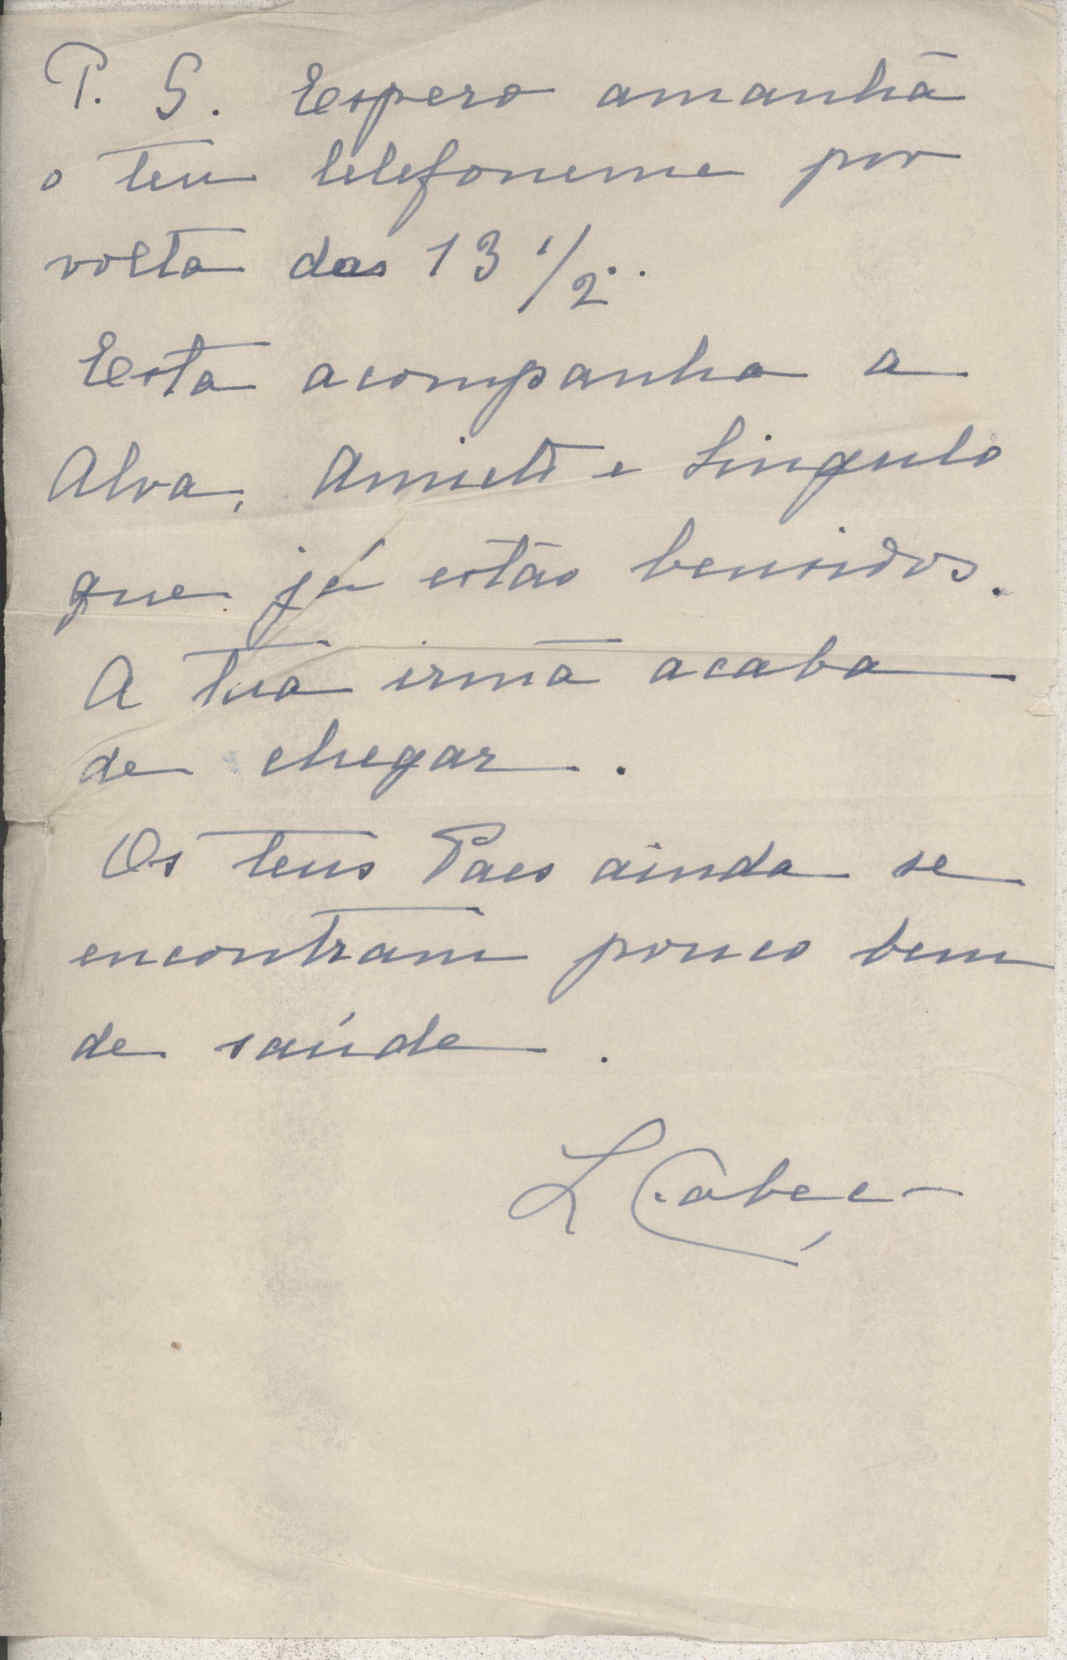 P. S. Espero amanhã
o teu telefonema por
volta das 13 1/2.
Esta acompanha a
Alva, Amicto e Singulo
que já estão bensidos.
A tua irmã acaba
de chegar.
Os teus Paes ainda se
encontram pouco bem
de saúde.
L